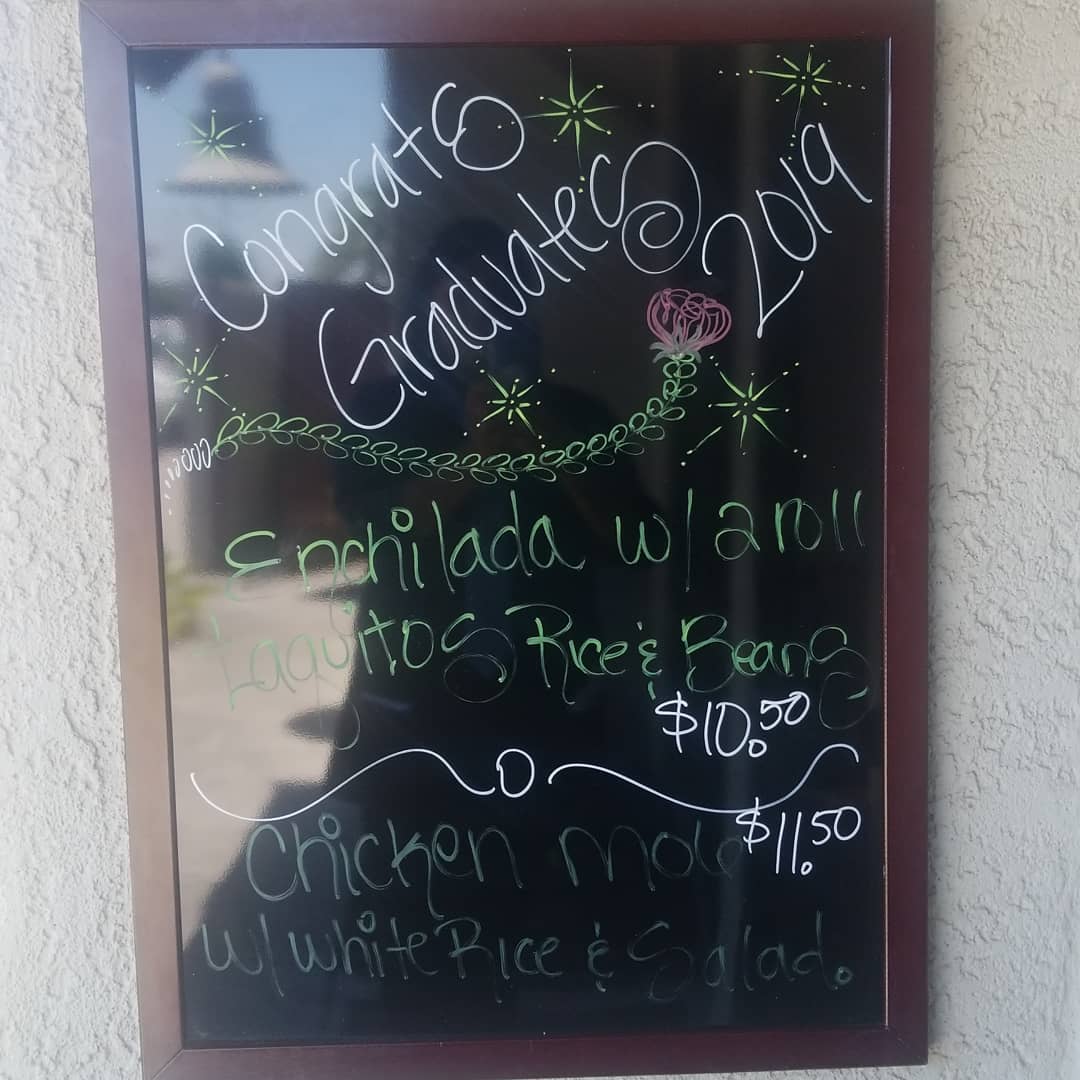 Congrats
Graduates 2019
Enchilada w/ a roll
taquitos Rice & Beans
$10.50
$11.50
Chicken Mole
w/ white Rice & Salad.